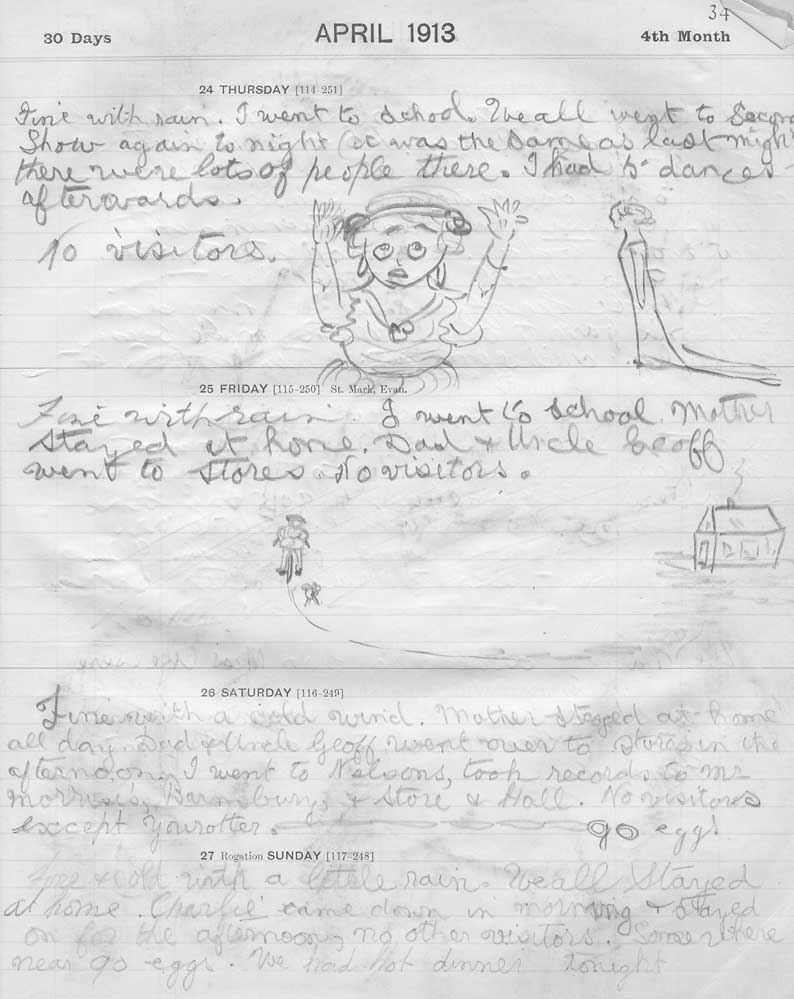 34
30 Days APRIL 1913 4th Month
24 THURSDAY [114-251]
Fine with rain. I went to school. We all went to Secon
Show again to night (it was the same as last night
there were lots of people there. I had 5 dances
afterwards.
No visitors.
25 FRIDAY [115-250] St. Mark, Evan.
Fine with rain. I went to school. Mother
stayed at home. Dad & Uncle Geoff
went to stores. No visitors.
26 SATURDAY [116-249]
Fine with a cold wind. Mother stayed at home
all day. Dad & Uncle Geoff went over to stores in the
afternoon. I went to Nelsons, took records to mr
morris's, Barnsburys & Store & Hall. No visitors
except Yourotter. 90 eggs
27 Rogation SUNDAY [117-248]
Fine & cold with a little rain. We all Stayed
at home. Charlie came down in morning & stayed
on for the afternoon, no other visitors. Somewhere
near 90 eggs. We had hot dinner tonight